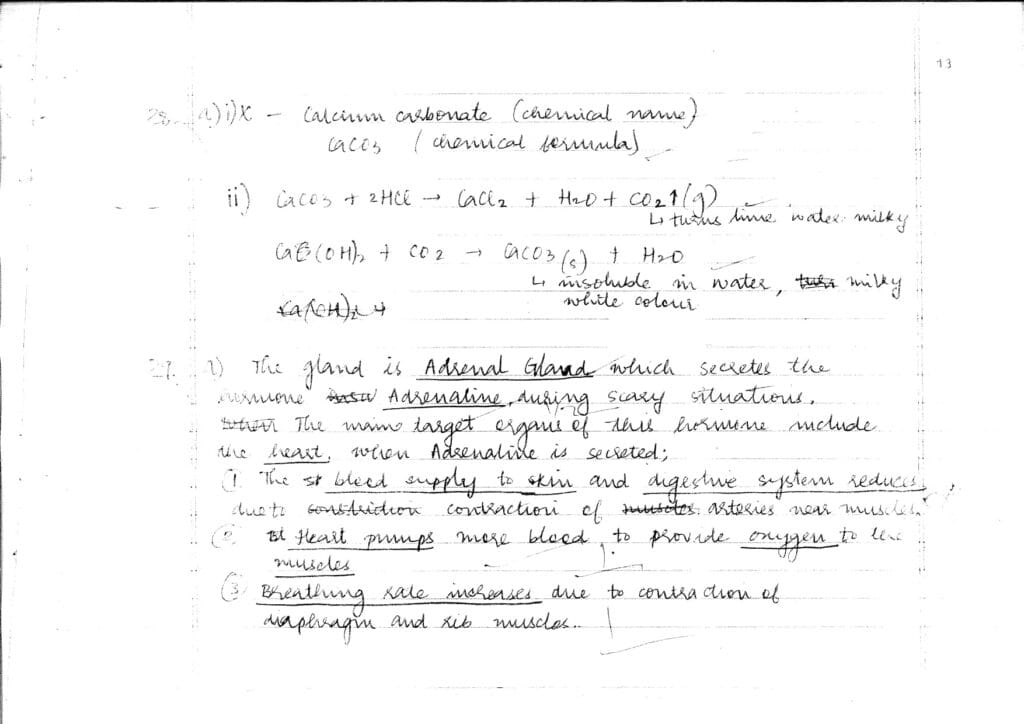 13
28. a) i) X - Calcium carbonate (chemical name)
CaCO3 (chemical formula)
ii) CaCO3 + 2HCl → CaCl2 + H2O + CO2↑(g)
↳ turns lime water milky
Ca(OH)2 + CO2 → CaCO3(s) + H2O
↳ insoluble in water, milky
white colour
Ca(OH)2 +
29. a) The gland is Adrenal Gland which secretes the
hormone Adrenaline, during scary situations.
when The main target organs of this hormone include
the heart. when Adrenaline is secreted;
① The blood supply to skin and digestive system reduces,
due to constriction contraction of muscles arteries near muscles.
② Heart pumps more blood, to provide oxygen to the
muscles
③ Breathing rate increases due to contraction of
diaphragm and rib muscles..